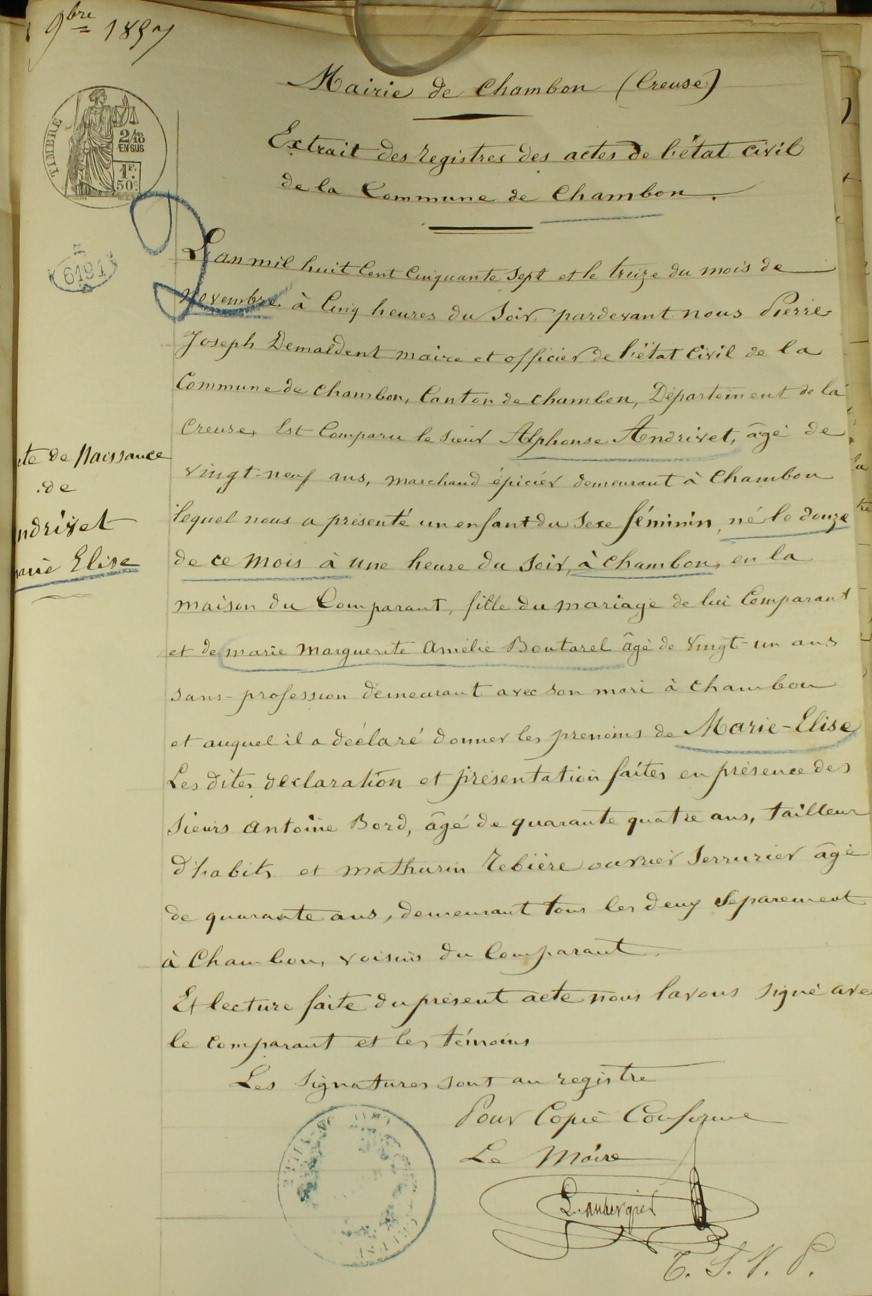 9bre 1857
Mairie de Chambon (Creuse)
TIMBRE
2/10
EN SUS
1F.
50c.
Extrait des registres des actes de l'état civil
de la Commune de Chambon.
6191
L'an mil huit cent cinquante sept et le treize du mois de
novembre à cinq heures du soir, pardevant nous Pierre
Joseph Demaldent maire et officier de l'état civil de la
Commune de Chambon, Canton de Chambon, Département de la
Creuse, Est Comparu le sieur Alphonse Andrivet, âgé de
vingt-neuf ans, marchand épicier demeurant à Chambon
lequel nous a présenté un enfant du sexe féminin, né le douze
de ce mois à une heure du soir, à Chambon, en la
maison du Comparant, fille du mariage de lui Comparant
et de marie marguerite Amélie Boutarel âgé de vingt-un ans
sans-profession demeurant avec son mari à Chambon
et auquel il a déclaré donner les prénoms de Marie-Elise
Les dites déclaration et présentation faites en présence des
sieurs Antoine Bord, âgé de quarante quatre ans, tailleur
d'habits et mathurin Rebière ouvrier serrurier âgé
de quarante ans, demeurant tous les deux séparement
à Chambon, voisins du Comparant.
Et lecture faite du présent acte nous l'avons signé ave
le comparant et les témoins
Les signatures sont au registre
Pour Copie Conforme
Le Maire
T. S. V. P.
te de Naissance
de
ndrivet
arie Elise